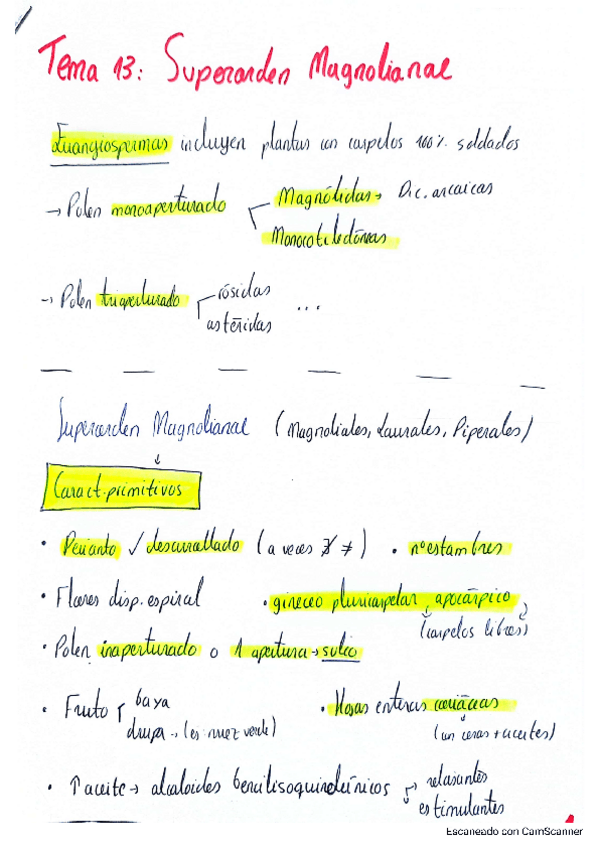 Tema 13: Superorden Magnolianae
Euangiospermas incluyen plantas con carpelos 100% soldados
→ Polen monoaperturado
Magnólidas → Dic. arcaicas
Monocotiledóneas
→ Polen triaperturado
rósidas
astéridas
...
Superorden Magnolianae (Magnoliales, Laurales, Piperales)
↓
Caract. primitivos
• Perianto ✓ desarrollado (a veces ∄ ≠)
• nº estambres
• Flores disp. espiral
• gineceo pluricarpelar, apocárpico
(carpelos libres)
• Polen inaperturado o 1 apertura → sulco
• Fruto
baya
drupa → (ej: nuez verde)
• Hojas enteras coriáceas
(con ceras + aceites)
• ↑ aceite → alcaloides bencilisoquinoleínicos
relajantes
estimulantes
Escaneado con CamScanner